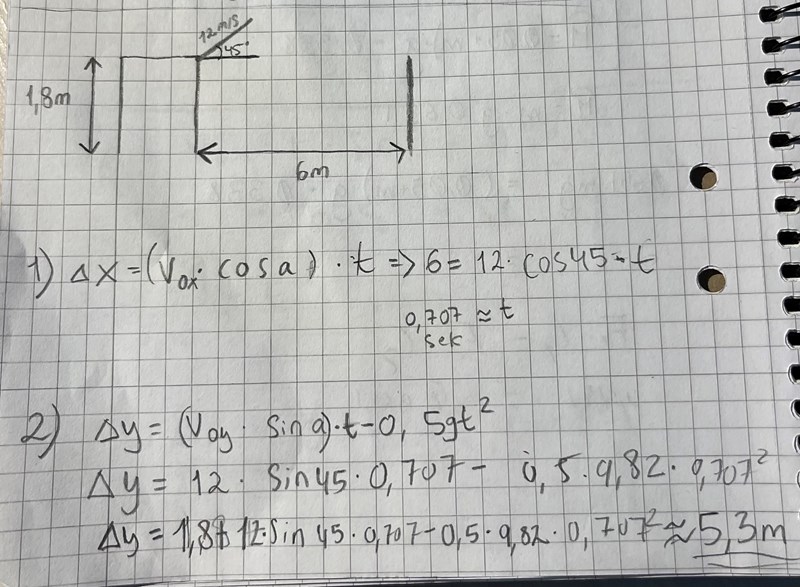 12m/s
45°
1,8m
6m
1) Δx = (V₀ₓ · cos a) · t => 6 = 12 · cos45 · t
0,707 ≈ t
sek
2) Δy = (V₀y · sin a) · t - 0,5gt²
Δy = 12 · sin45 · 0,707 - 0,5 · 9,82 · 0,707²
Δy = 1,8+12·sin 45 · 0,707 - 0,5 · 9,82 · 0,707² ≈ 5,3m